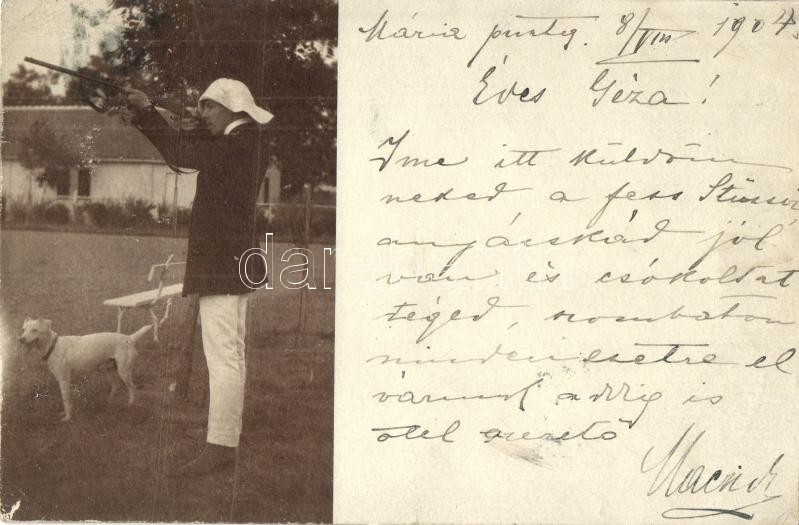 Mária puszta. 8/VIII. 1904.
Édes Géza!
Ime itt küldöm
neked a fess Stüssit,
anyácskád jól
van és csókoltat
téged, szombaton
minden esetre el
várunk addig is
ölel szerető